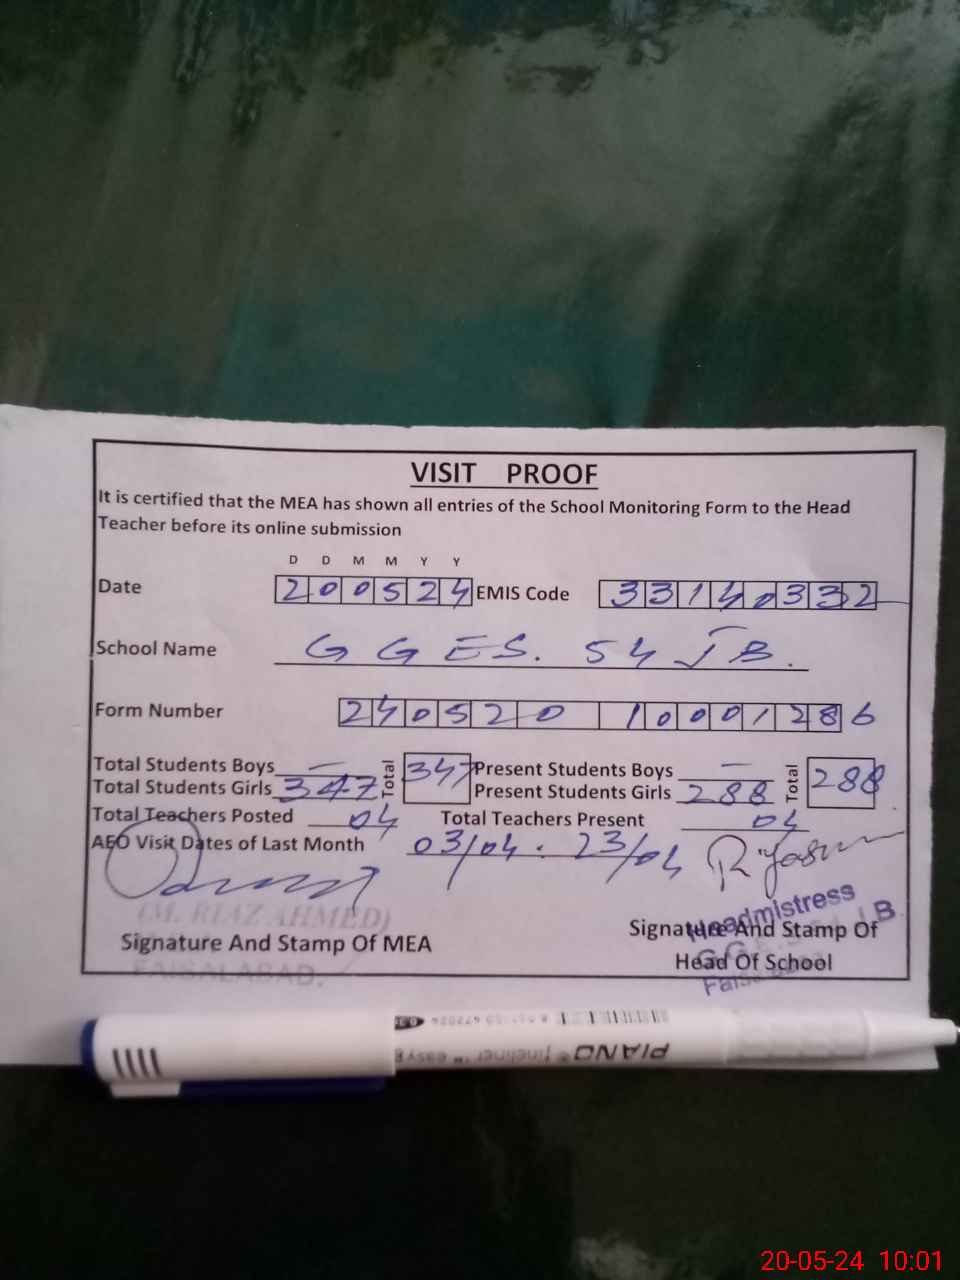 VISIT PROOF
It is certified that the MEA has shown all entries of the School Monitoring Form to the Head
Teacher before its online submission
D D M M Y Y
Date 200524 EMIS Code 33140332
School Name GGES. 54 JB.
Form Number 240520 10001286
Total Students Boys — Total 347 Present Students Boys — Total 288
Total Students Girls 347 Present Students Girls 288
Total Teachers Posted 04 Total Teachers Present 04
AEO Visit Dates of Last Month 03/04. 23/04
(M. RIAZ AHMED)
Signature And Stamp Of MEA
FAISALABAD.
Headmistress
Signature And Stamp Of
Head Of School
PIANO fineliner
20-05-24 10:01